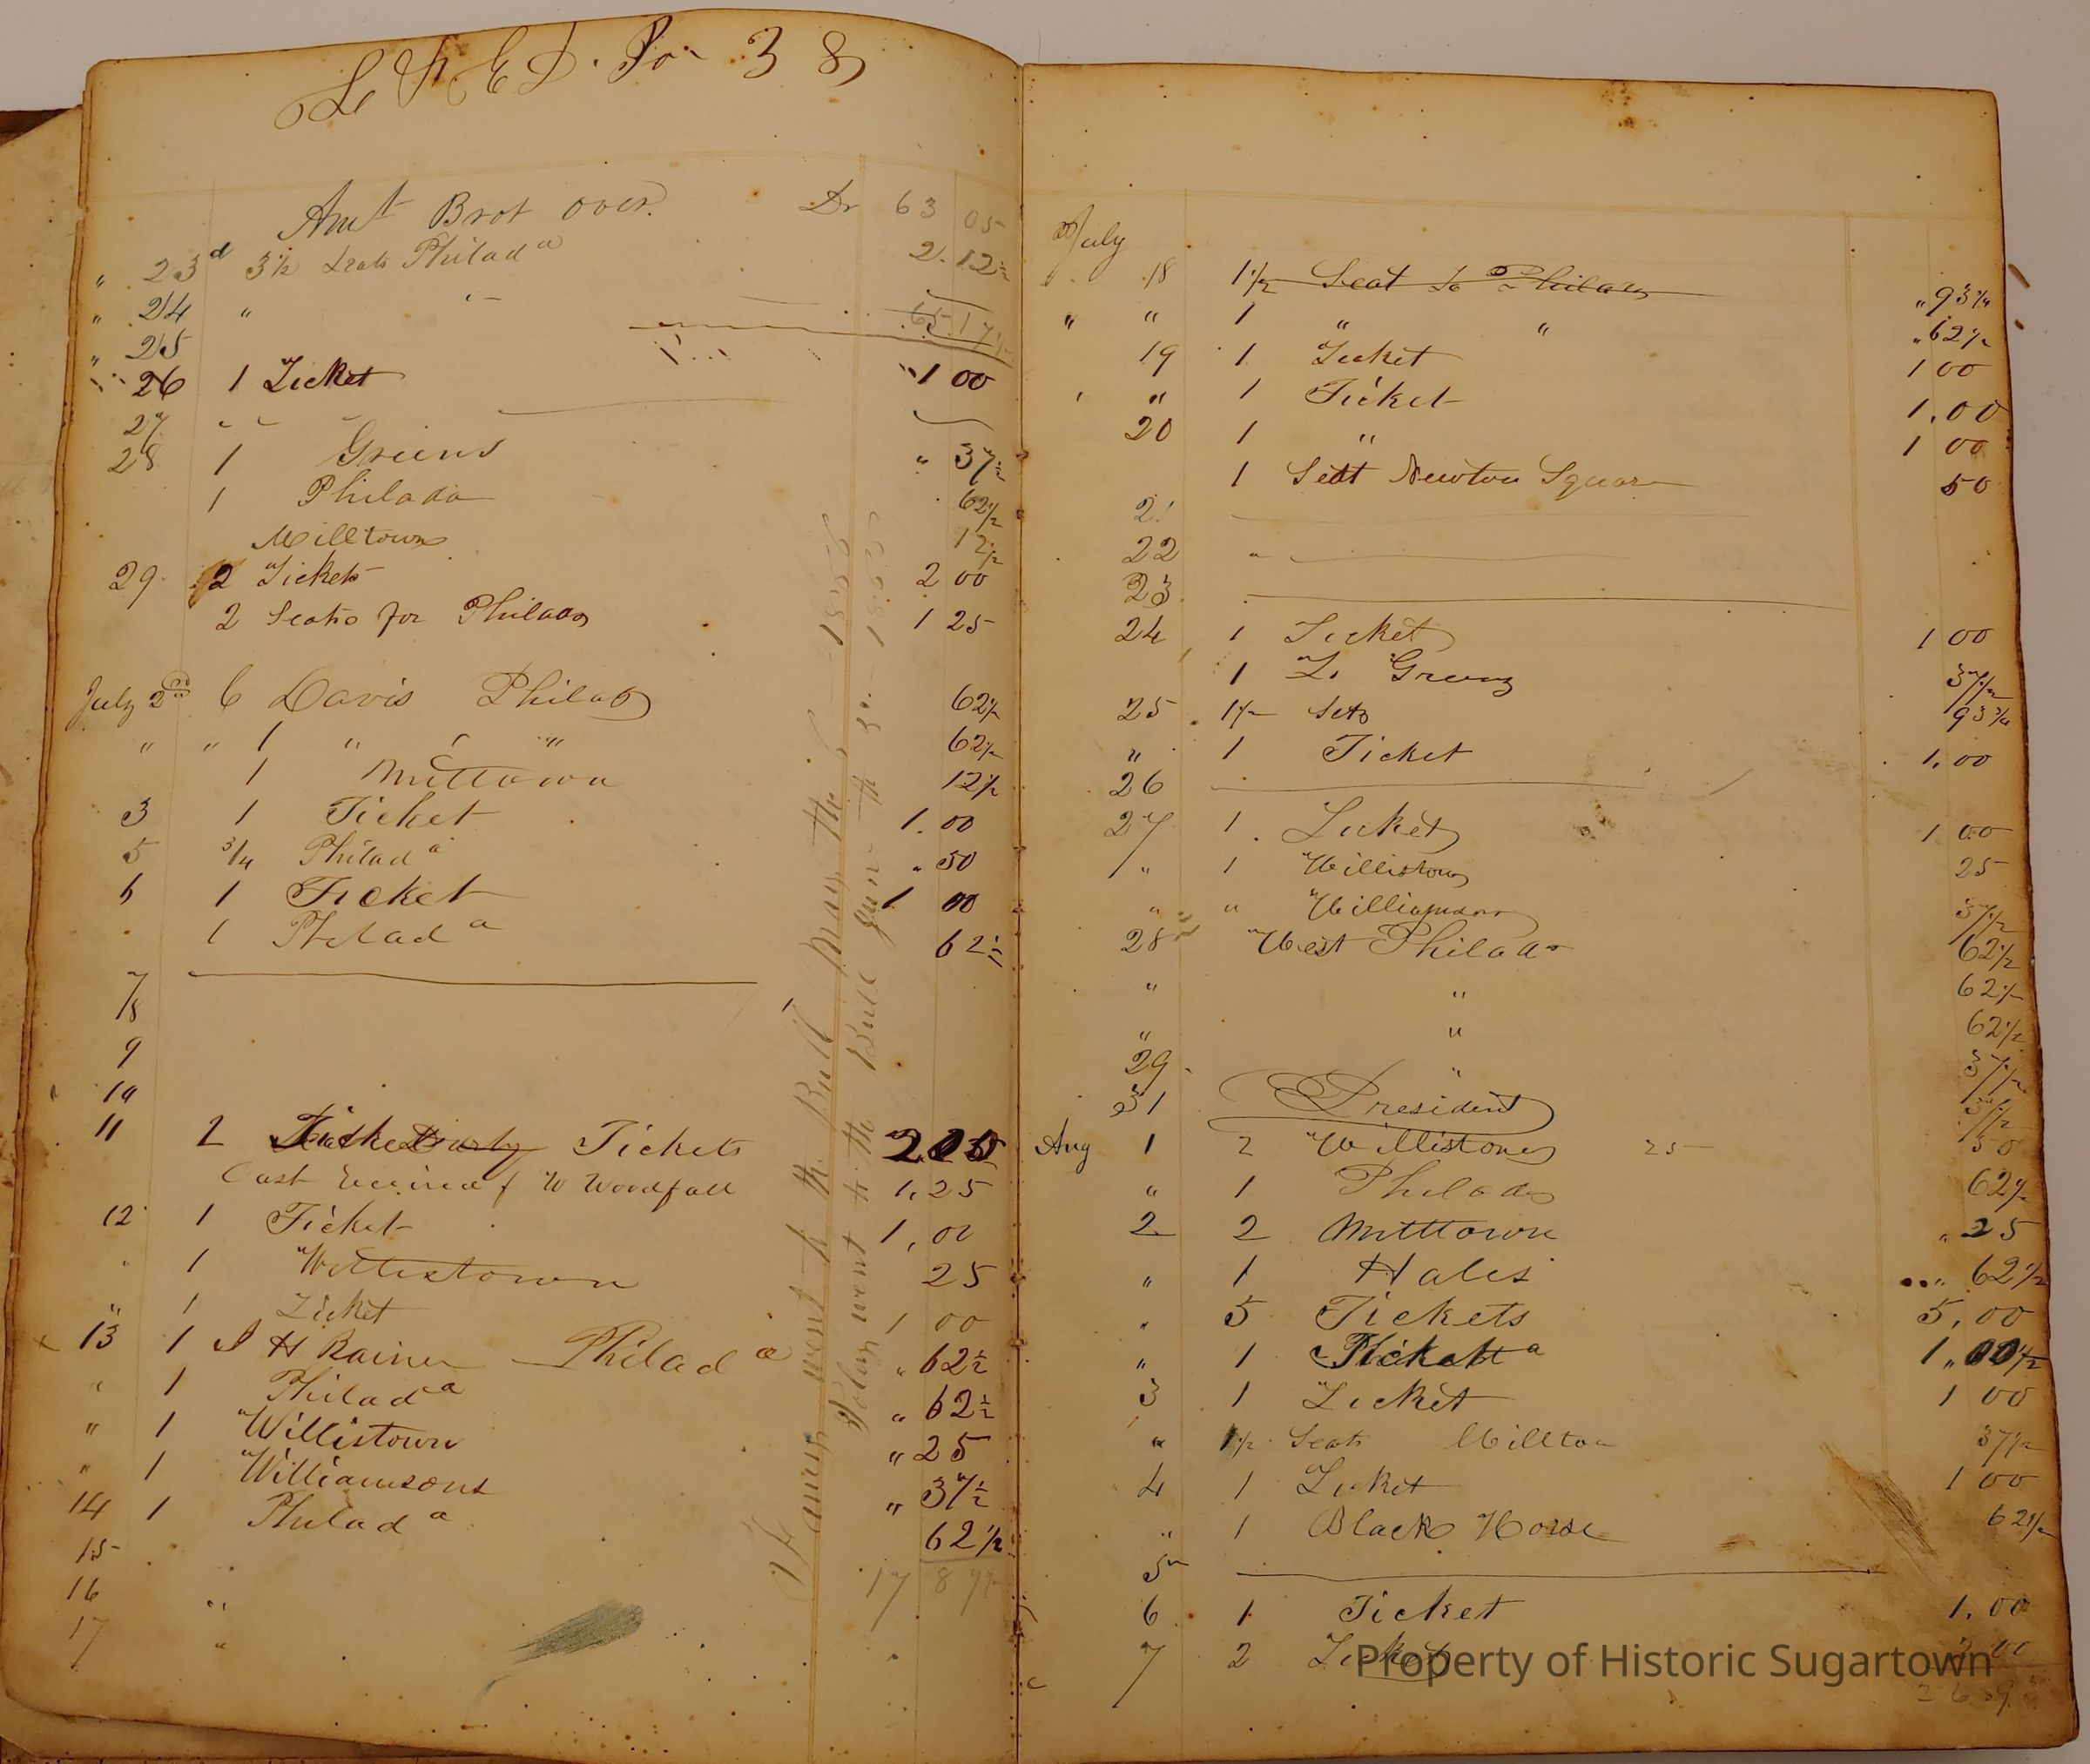 38
Amt Brot over. Dr 63 05
" 23d 3½ Seats Philada 2.12½
" 24 " "
" 25
" 26 1 Ticket "1 00
27
28 1 Greens " 37½
1 Philada 62½
Milltown 12½
29 2 Tickets 2 00
2 Seats for Philada 1 25
July 2nd 6 Davis Philada 62½
" " 1 " " 62½
1 Milltown 12½
3 1 Ticket 1.00
5 3/4 Philada " 50
6 1 Ticket 1 00
1 Philada 62½
7
8
9
10
11 2 Tickets 2.00
Cash Received of W Woodfall 1,25
12 1 Ticket 1,00
" 1 Willistown 25
" 1 Ticket 1 00
13 1 J H Rainer Philada " 62½
" 1 Philada " 62½
" 1 Willistown " 25
" 1 Williamsons " 37½
14 1 Philada 62½
15
16 "
17 "
went to the Bull May the
went to the Bull June th
July
18 1½ Seat To Philada " 93¾
" " 1 " " " 62½
19 1 Ticket 1 00
" 1 Ticket 1.00
20 1 " 1 00
1 Seat Newton Square 50
21
22
23
24 1 Ticket 1 00
1 To Greens 37½
25 1½ Sets 93¾
" 1 Ticket 1.00
26
27 1 Ticket 1 00
" 1 Willistown 25
" " Williamson 37½
28 West Philada 62½
" " 62½
" " 62½
29 " 37½
31 President 37½
Aug 1 2 Willistown 25 50
" 1 Philada 62½
2 2 Milltown " 25
" 1 Hales " 62½
" 5 Tickets 5,00
" 1 Ticket 1,00
3 1 Ticket 1 00
" 1½ Seats Milltown 37½
4 1 Ticket 1 00
" 1 Black Horse 62½
5
6 1 Ticket 1.00
7 2 Tickets 2 00
Property of Historic Sugartown